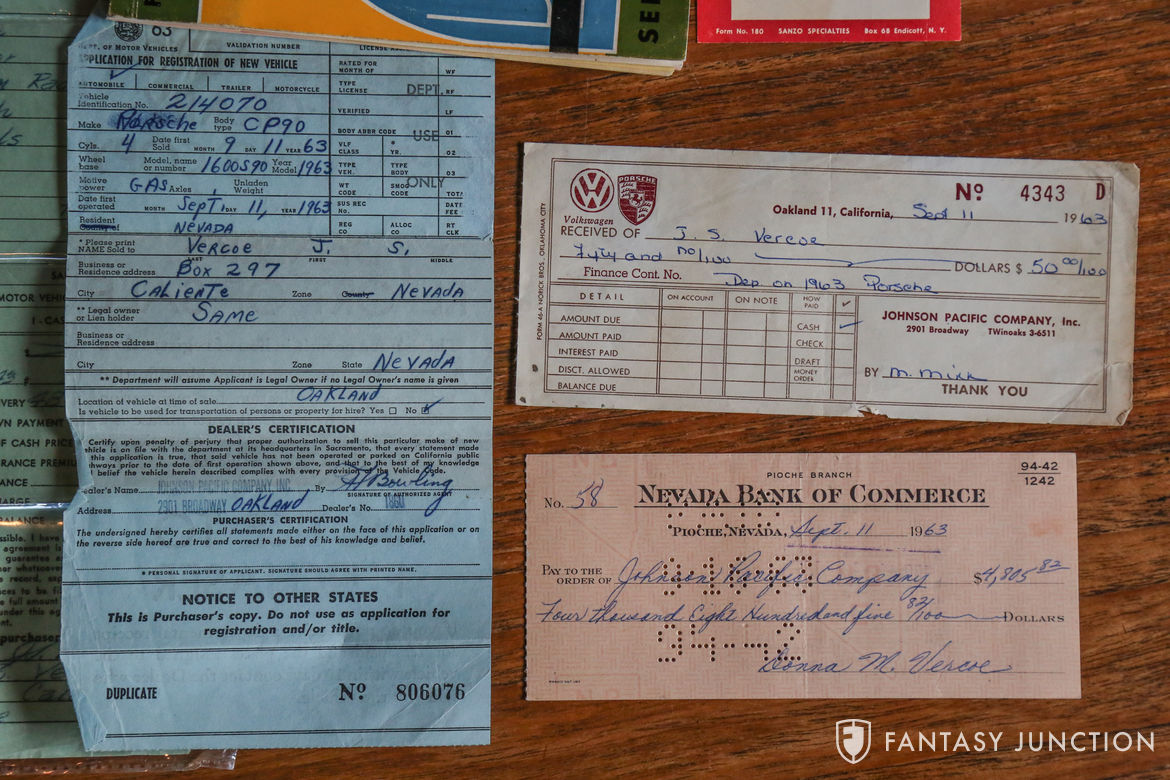 SER
Form No. 180 SANZO SPECIALTIES Box 68 Endicott, N. Y.
63
DEPT. OF MOTOR VEHICLES
VALIDATION NUMBER
APPLICATION FOR REGISTRATION OF NEW VEHICLE
RATED FOR MONTH OF
WF
AUTOMOBILE COMMERCIAL TRAILER MOTORCYCLE
TYPE LICENSE
DEPT.
RF
Vehicle Identification No. 214070
VERIFIED
LF
Make Porsche Body type CP90
BODY ABBR CODE
USE
01
Cyls. 4 Date first Sold MONTH 9 DAY 11 YEAR 63
VLF CLASS
* YR.
02
Wheel base Model, name or number 1600S90 Year Model 1963
TYPE VEH.
TYPE BODY
03
Motive power GAS Axles Unladen Weight
WT CODE
SMOG CODE
ONLY
TOTAL
Date first operated MONTH Sept. DAY 11, YEAR 1963
SUS REC No.
DATE FEE
Resident County of NEVADA
REG CO
ALLOC CO
RT CLK
* Please print NAME Sold to Vercoe J. S.
LAST FIRST MIDDLE
Business or Residence address Box 297
City CALIENTE Zone County NEVADA
** Legal owner or Lien holder SAME
Business or Residence address
City Zone State NEVADA
** Department will assume Applicant is Legal Owner if no Legal Owner's name is given
Location of vehicle at time of sale. OAKLAND
Is vehicle to be used for transportation of persons or property for hire? Yes No
DEALER'S CERTIFICATION
Certify upon penalty of perjury that proper authorization to sell this particular make of new
vehicle is on file with the department at its headquarters in Sacramento, that every statement made
this application is true, that said vehicle has not been operated or parked on California public
highways prior to the date of first operation shown above, and that to the best of my knowledge
belief the vehicle herein described complies with every provision of the Vehicle Code.
Dealer's Name JOHNSON PACIFIC COMPANY INC. By H Bowling
SIGNATURE OF AUTHORIZED AGENT
Address 2901 BROADWAY OAKLAND Dealer's No. 1860
PURCHASER'S CERTIFICATION
The undersigned hereby certifies all statements made either on the face of this application or on
the reverse side hereof are true and correct to the best of his knowledge and belief.
* PERSONAL SIGNATURE OF APPLICANT. SIGNATURE SHOULD AGREE WITH PRINTED NAME.
NOTICE TO OTHER STATES
This is Purchaser's copy. Do not use as application for
registration and/or title.
DUPLICATE No 806076
FORM 46-A NORICK BROS., OKLAHOMA CITY
PORSCHE
Volkswagen
No 4343 D
Oakland 11, California, Sept 11 1963
RECEIVED OF J. S. Vercoe
Fifty and no/100 DOLLARS $ 50 00/100
Finance Cont. No. Dep on 1963 Porsche
DETAIL ON ACCOUNT ON NOTE HOW PAID ✓
AMOUNT DUE CASH ✓
AMOUNT PAID CHECK
INTEREST PAID DRAFT
DISCT. ALLOWED MONEY ORDER
BALANCE DUE
JOHNSON PACIFIC COMPANY, Inc.
2901 Broadway TWinoaks 3-6511
BY
THANK YOU
PIOCHE BRANCH
94-42
1242
No. 58 NEVADA BANK OF COMMERCE
PIOCHE, NEVADA, Sept. 11 1963
PAY TO THE ORDER OF Johnson Pacific Company $4,805 82
Four thousand Eight Hundred and five 82/100 DOLLARS
94-42
Donna M. Vercoe
FANTASY JUNCTION